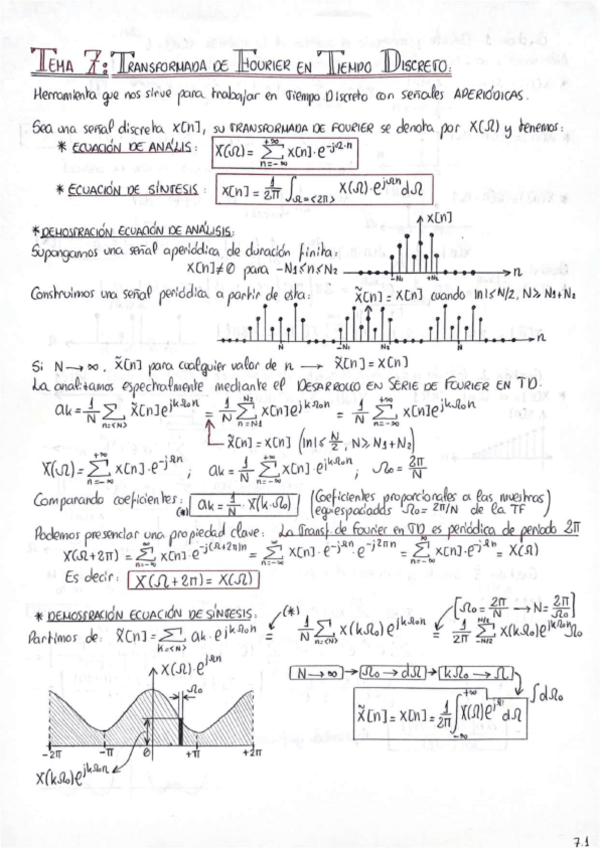 TEMA 7: TRANSFORMADA DE FOURIER EN TIEMPO DISCRETO:
Herramienta que nos sirve para trabajar en Tiempo Discreto con señales APERIÓDICAS.
Sea una señal discreta x[n], su TRANSFORMADA DE FOURIER se denota por X(Ω) y tenemos:
* ECUACIÓN DE ANÁLISIS: X(Ω) = Σ_{n=-∞}^{+∞} x[n]·e^{-jΩ·n}
* ECUACIÓN DE SÍNTESIS: x[n] = 1/2π ∫_{Ω=<2π>} X(Ω)·e^{jΩn} dΩ
* DEMOSTRACIÓN ECUACIÓN DE ANÁLISIS:
x[n]
Supongamos una señal aperiódica de duración finita:
x[n]≠0 para -N1≤n≤N2
-N1 +N2 n
Construimos una señal periódica a partir de esta:
x̃[n] = x[n] cuando |n|≤N/2, N≥N1+N2
N -N1 N2 N n
Si N→∞, x̃[n] para cualquier valor de n → x̃[n] = x[n]
La analizamos espectralmente mediante el DESARROLLO EN SERIE DE FOURIER EN TD.
ak = 1/N Σ_{n=<N>} x̃[n]e^{jkΩon} = 1/N Σ_{n=N1}^{N2} x[n]e^{jkΩon} = 1/N Σ_{n=-∞}^{+∞} x[n]e^{jkΩon}
x̃[n] = x[n] (|n|≤N/2, N≥N1+N2)
X(Ω) = Σ_{n=-∞}^{+∞} x[n]·e^{-jΩn} ; ak = 1/N Σ_{n=-∞}^{+∞} x[n]·e^{jkΩon} ; Ωo = 2π/N
Comparando coeficientes: (*) ak = 1/N · X(k·Ωo) (Coeficientes proporcionales a las muestras
equiespaciadas Ωo = 2π/N de la TF)
Podemos presenciar una propiedad clave: La Transf. de Fourier en TD es periódica de periodo 2π
X(Ω+2π) = Σ_{n=-∞}^{∞} x[n]·e^{-j(Ω+2π)n} = Σ_{n=-∞}^{∞} x[n]·e^{-jΩn}·e^{-j2πn} = Σ_{n=-∞}^{∞} x[n]·e^{-jΩn} = X(Ω)
Es decir: X(Ω+2π) = X(Ω)
* DEMOSTRACIÓN ECUACIÓN DE SÍNTESIS:
(*) [Ωo = 2π/N → N = 2π/Ωo]
Partimos de: x̃[n] = Σ_{k=<N>} ak·e^{jkΩon} = 1/N Σ_{N} X(kΩo)e^{jkΩon} = 1/2π Σ_{-N/2}^{N/2} X(kΩo)e^{jkΩon}Ωo
X(Ω)·e^{jΩn}
Ωo
N→∞ → Ωo→dΩ → kΩo→Ω
∫dΩo
x̃[n] = x[n] = 1/2π ∫_{-∞}^{+∞} X(Ω)e^{jΩn} dΩ
-2π -π 0 +π +2π
X(kΩo)e^{jkΩon}
7.1